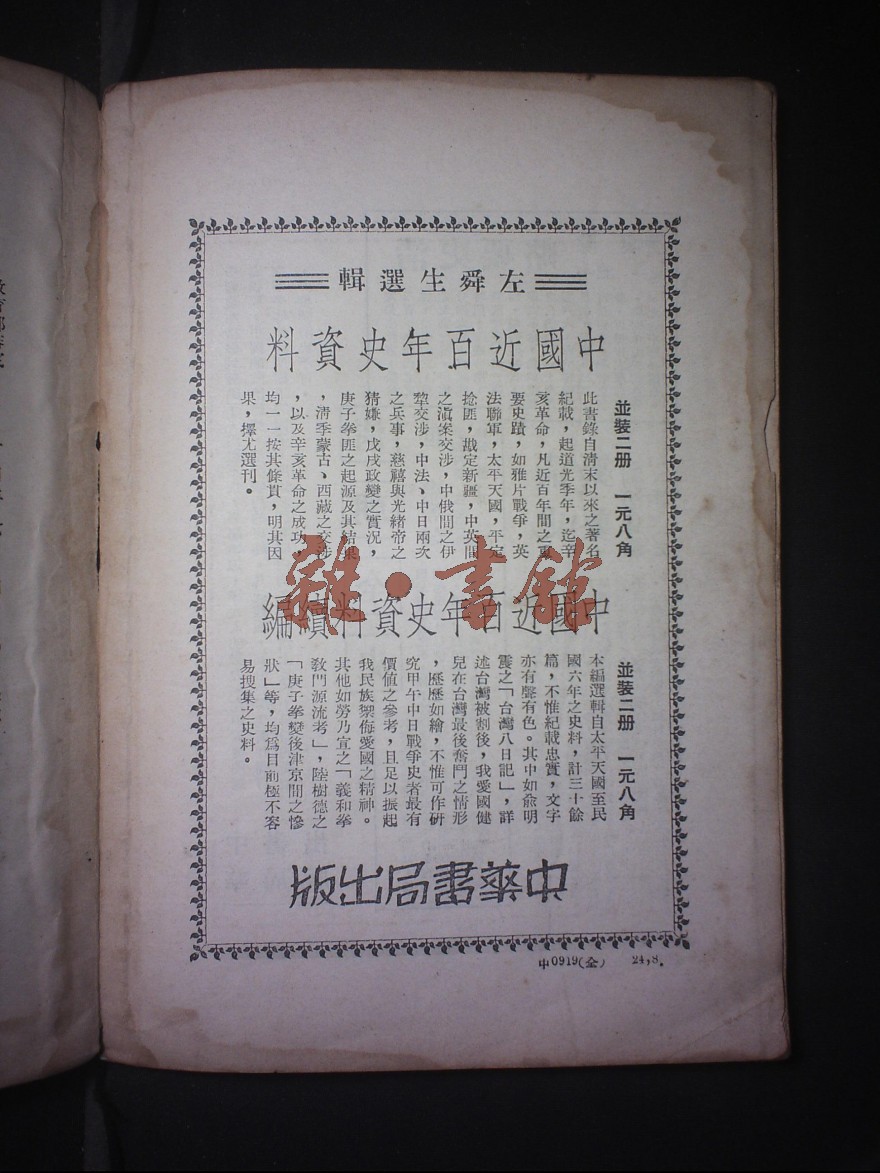 左舜生選輯
中國近百年史資料
並裝二册 一元八角
此書錄自清末以來之著名
紀載，起道光季年，迄辛
亥革命，凡近百年間之重
要史蹟，如雅片戰爭，英
法聯軍，太平天國，平定
捻匪，戡定新疆，中英間
之滇案交涉，中俄間之伊
犂交涉，中法、中日兩次
之兵事，慈禧與光緒帝之
猜嫌，戊戌政變之實況，
庚子拳匪之起源及其結果
，清季蒙古、西藏之交涉
，以及辛亥革命之成功，
均一一按其條貫，明其因
果，擇尤選刊。
雜·書館
中國近百年史資料續編
並裝二册 一元八角
本編選輯自太平天國至民
國六年之史料，計三十餘
篇，不惟紀載忠實，文字
亦有聲有色。其中如俞明
震之「台灣八日記」，詳
述台灣被割後，我愛國健
兒在台灣最後奮鬥之情形
，歷歷如繪，不惟可作研
究甲午中日戰爭史者最有
價值之參考，且足以振起
我民族禦侮愛國之精神。
其他如勞乃宣之「義和拳
敎門源流考」，陸樹德之
「庚子拳變後津京間之慘
狀」等，均爲目前極不容
易搜集之史料。
中華書局出版
中0919(全) 24,8.